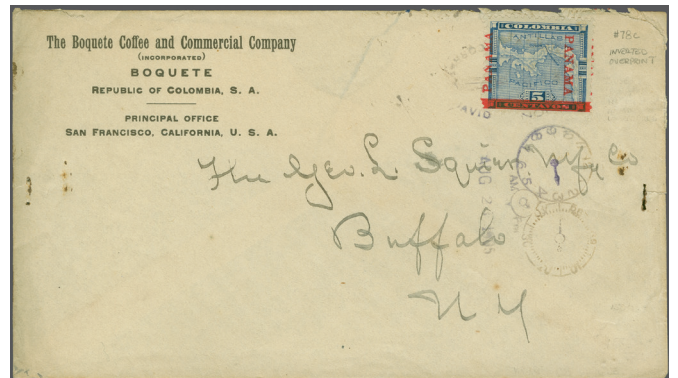 The Boquete Coffee and Commercial Company
(INCORPORATED)
BOQUETE
REPUBLIC OF COLOMBIA, S. A.
PRINCIPAL OFFICE
SAN FRANCISCO, CALIFORNIA, U. S. A.
COLOMBIA
ANTILLAS
PANAMA
PANAMA
PACIFICO
5
CENTAVOS
#78c
INVERTED
OVERPRINT
DAVID
AUG 24
The Geo. L. Squier Mfg Co
Buffalo
N Y